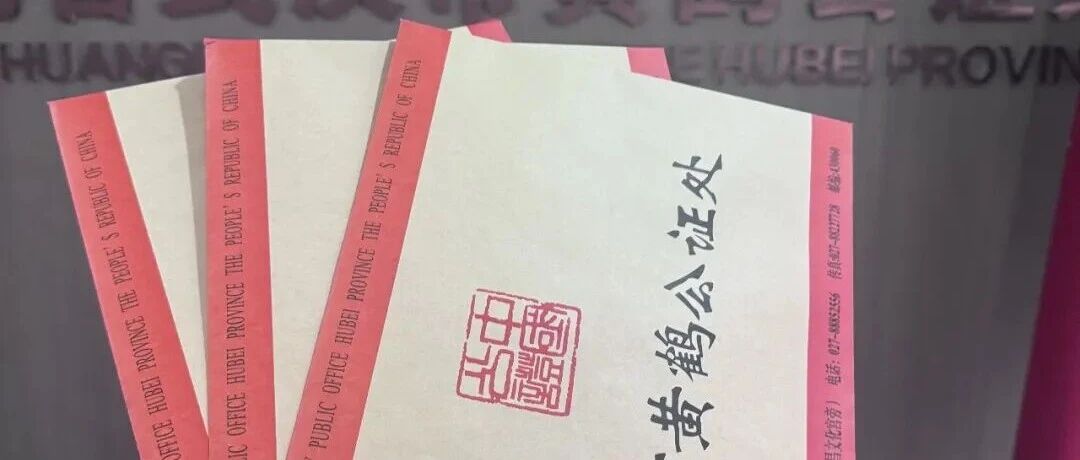 HUANG
E HUBEI PROVIN
OFFICE HUBEI PROVINCE THE PEOPLE' S REPUBLIC OF CHINA
IC OFFICE HUBEI PROVINCE THE PEOPLE' S REPUBLIC OF CHINA
PUBLIC OFFICE HUBEI PROVINCE THE PEOPLE' S REPUBLIC OF CHINA
中國公證
黄鹤公证处
昌文化宫旁） 电话：027-88852556 传真:027-88227728 邮编:430060